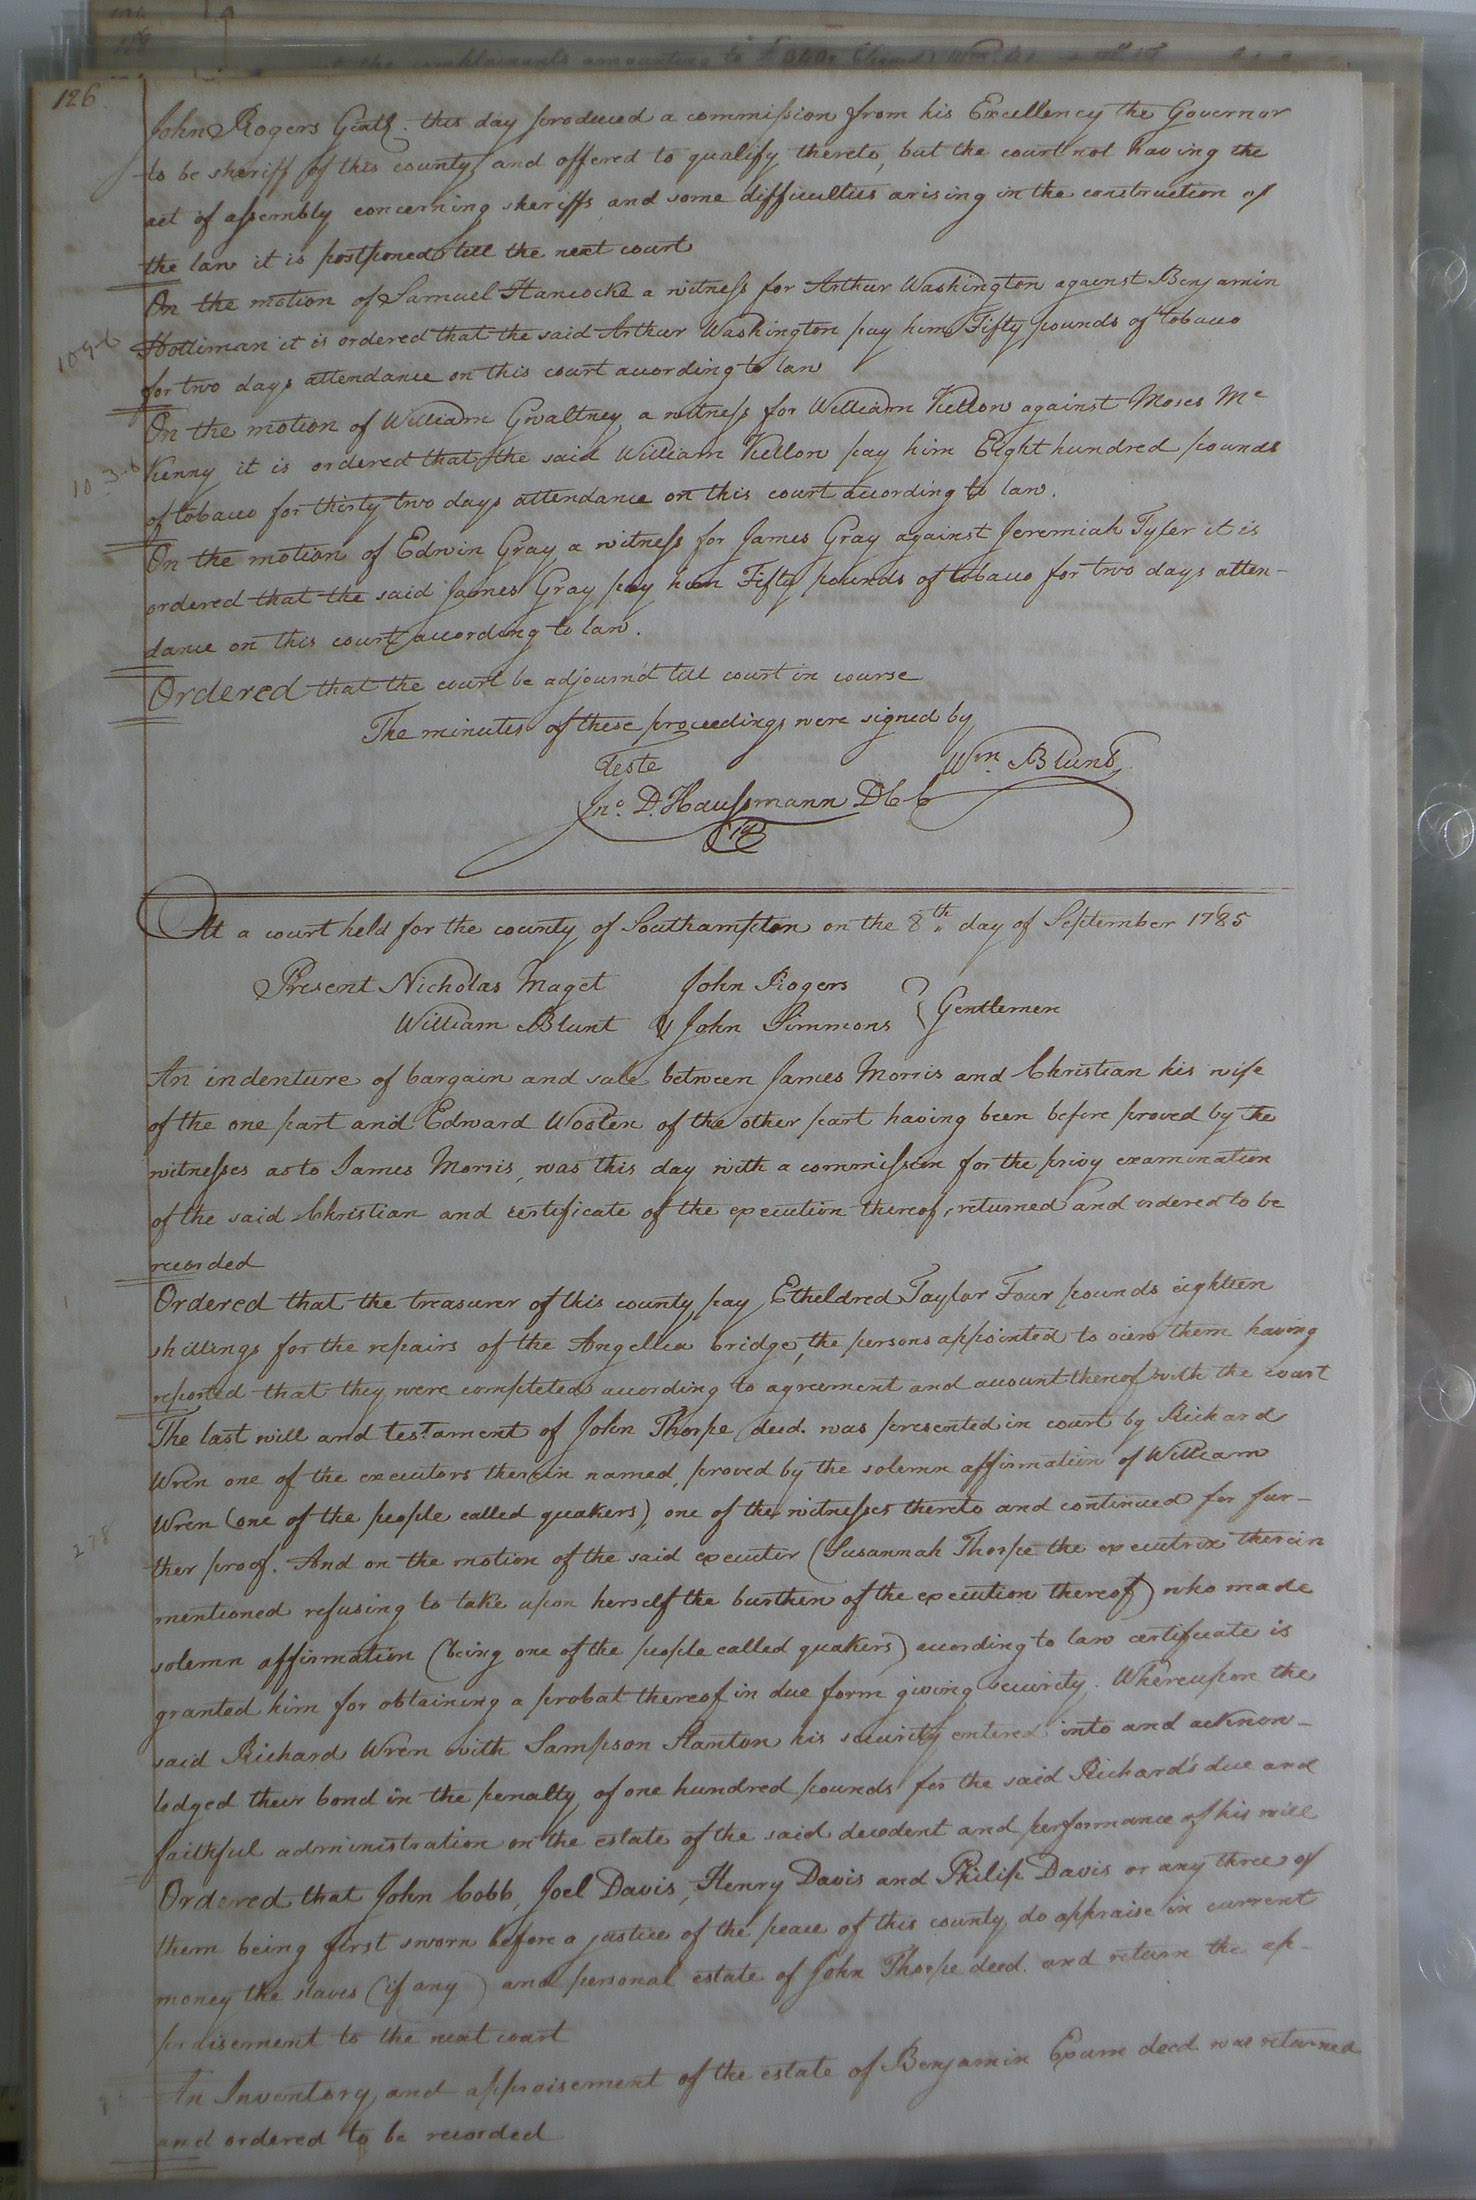 126.
John Rogers Gentl. this day produced a commission from his Excellency the Governor
to be sheriff of this county and offered to qualify thereto, but the court not having the
act of assembly concerning sheriffs and some difficulties arising in the construction of
the law it is postponed till the next court
On the motion of Samuel Hancocke a witness for Arthur Washington against Benjamin
Holliman it is ordered that the said Arthur Washington pay him Fifty pounds of tobacco
for two days attendance on this court according to law
On the motion of William Gwaltney a witness for William Kellow against Moses Mc
Kenny it is ordered that the said William Kellow pay him Eight hundred pounds
of tobacco for thirty two days attendance on this court according to law.
On the motion of Edwin Gray a witness for James Gray against Jeremiah Tyler it is
ordered that the said James Gray pay him Fifty pounds of tobacco for two days atten-
dance on this court according to law.
Ordered that the court be adjourn'd till court in course
The minutes of these proceedings were signed by
Teste Wm. Blunt
Jno. D. Haussmann DCC
At a court held for the county of Southampton on the 8th day of September 1785
Present Nicholas Maget John Rogers
William Blunt & John Simmons } Gentlemen
An indenture of bargain and sale between James Morris and Christian his wife
of the one part and Edward Wooten of the other part having been before proved by the
witnesses as to James Morris, was this day with a commission for the privy examination
of the said Christian and certificate of the execution thereof, returned and ordered to be
recorded
Ordered that the treasurer of this county pay Etheldred Taylor Four pounds eighteen
shillings for the repairs of the Angellica bridge, the persons appointed to view them having
reported that they were completed according to agreement and account thereof with the court
The last will and testament of John Thorpe decd. was presented in court by Richard
Wren one of the executors therein named, proved by the solemn affirmation of William
Wren (one of the people called quakers), one of the witnesses thereto and continued for fur-
ther proof. And on the motion of the said executor (Susannah Thorpe the executrix therein
mentioned refusing to take upon herself the burthen of the execution thereof) who made
solemn affirmation (being one of the people called quakers) according to law certificate is
granted him for obtaining a probat thereof in due form giving security. Whereupon the
said Richard Wren with Sampson Stanton his security entered into and acknow-
ledged their bond in the penalty of one hundred pounds for the said Richard's due and
faithful administration on the estate of the said decedent and performance of his will
Ordered that John Cobb, Joel Davis, Henry Davis and Philip Davis or any three of
them being first sworn before a justice of the peace of this county do appraise in current
money the slaves (if any) and personal estate of John Thorpe decd. and return the ap-
praisement to the next court
An Inventory and appraisement of the estate of Benjamin Exum decd was returned
and ordered to be recorded